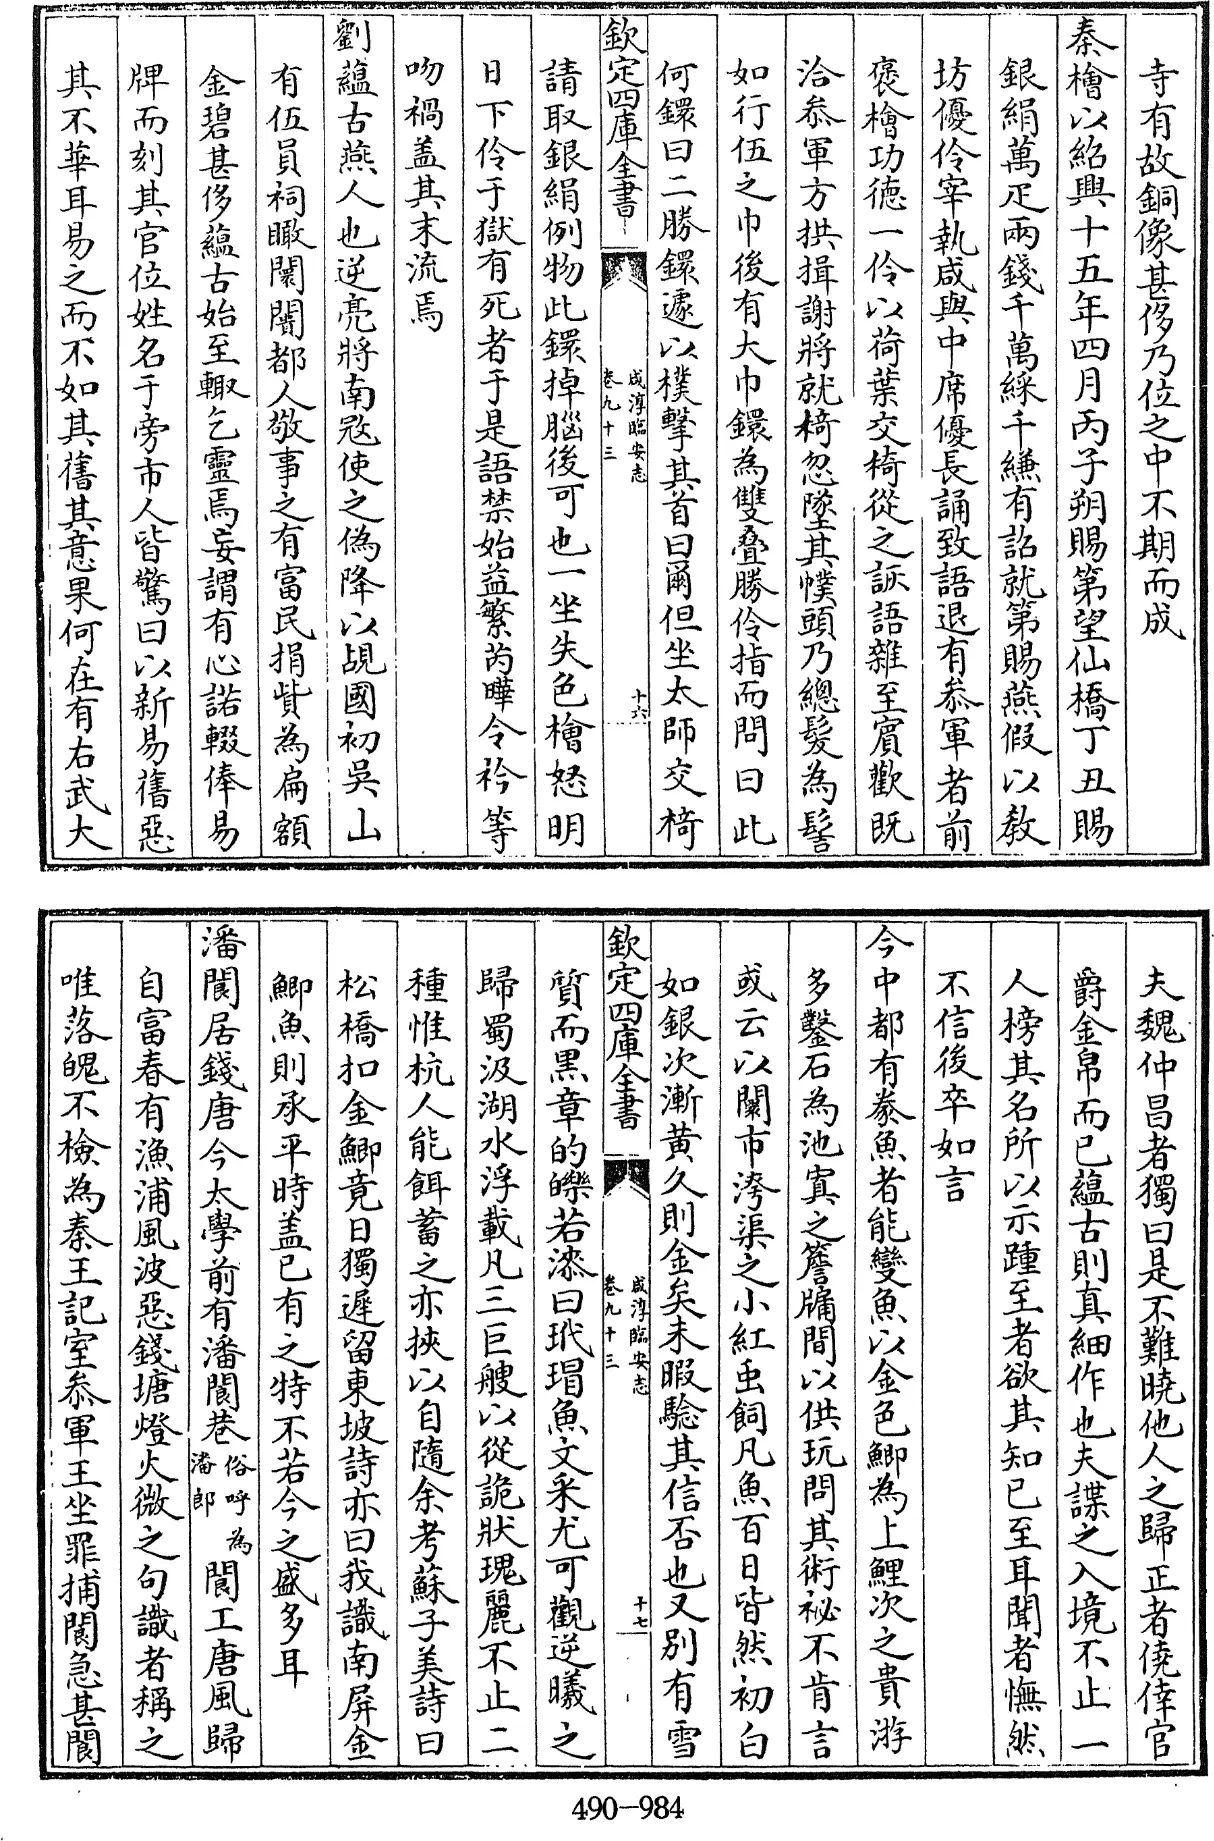 寺有故銅像甚侈乃位之中不期而成
秦檜以紹興十五年四月丙子朔賜第望仙橋丁丑賜
銀絹萬疋兩錢千萬綵千縑有詔就第賜燕假以教
坊優伶宰執咸與中席優長誦致語退有叅軍者前
褒檜功德一伶以荷葉交椅從之詼語雜至賔歡既
洽叅軍方拱揖謝將就椅忽墜其幞頭乃總髮為髻
如行伍之巾後有大巾鐶為雙叠勝伶指而問曰此
何鐶曰二勝鐶遽以樸擊其首曰爾但坐太師交椅
欽定四庫全書
咸淳臨安志
卷九十三
十六
請取銀絹例物此鐶掉腦後可也一坐失色檜怒明
日下伶于獄有死者于是語禁始益繁芮曄令衿等
吻禍盖其末流焉
劉蘊古燕人也逆亮將南宼使之偽降以覘國初吳山
有伍員祠瞰闤闠都人敬事之有富民捐貲為扁額
金碧甚侈蘊古始至輙乞靈焉妄謂有心諾輟俸易
牌而刻其官位姓名于旁市人皆驚曰以新易舊惡
其不華耳易之而不如其舊其意果何在有右武大
夫魏仲昌者獨曰是不難曉他人之歸正者僥倖官
爵金帛而已蘊古則真細作也夫諜之入境不止一
人榜其名所以示踵至者欲其知已至耳聞者憮然
不信後卒如言
今中都有豢魚者能變魚以金色鯽為上鯉次之貴游
多鑿石為池寘之簷牖間以供玩問其術祕不肯言
或云以闤市洿渠之小紅虫飼凡魚百日皆然初白
如銀次漸黃久則金矣未暇驗其信否也又別有雪
欽定四庫全書
咸淳臨安志
卷九十三
十七
質而黑章的皪若漆曰玳瑁魚文采尤可觀逆曦之
歸蜀汲湖水浮載凡三巨艘以從詭狀瑰麗不止二
種惟杭人能餌蓄之亦挾以自隨余考蘇子美詩曰
松橋扣金鯽竟日獨遲留東坡詩亦曰我識南屏金
鯽魚則承平時盖已有之特不若今之盛多耳
潘閬居錢唐今太學前有潘閬巷俗呼為潘郎閬工唐風歸
自富春有漁浦風波惡錢塘燈火微之句識者稱之
唯落魄不檢為秦王記室叅軍王坐罪捕閬急甚閬
490-984